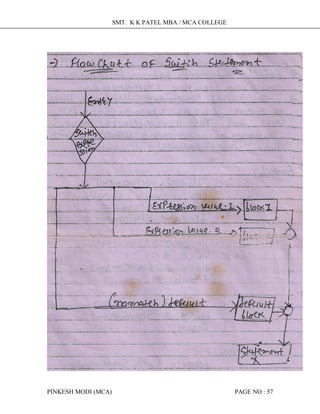 SMT. K K PATEL MBA / MCA COLLEGE
→) Flow Chart OF Switch Statement
Entry
Switch
expre
ssion
Expression value-1
block1
Expression value-2
(nomatch) default
default
block
Statement
X
PINKESH MODI (MCA)
PAGE NO : 57